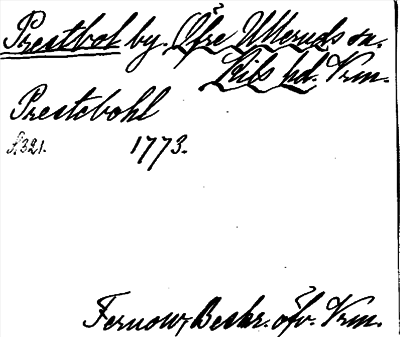 Prestbol by. Öfre Ulleruds sn.
Kils hd. Vrm.
Prestebohl
s. 321. 1773.
Fernow, Beskr. öfv. Vrm.